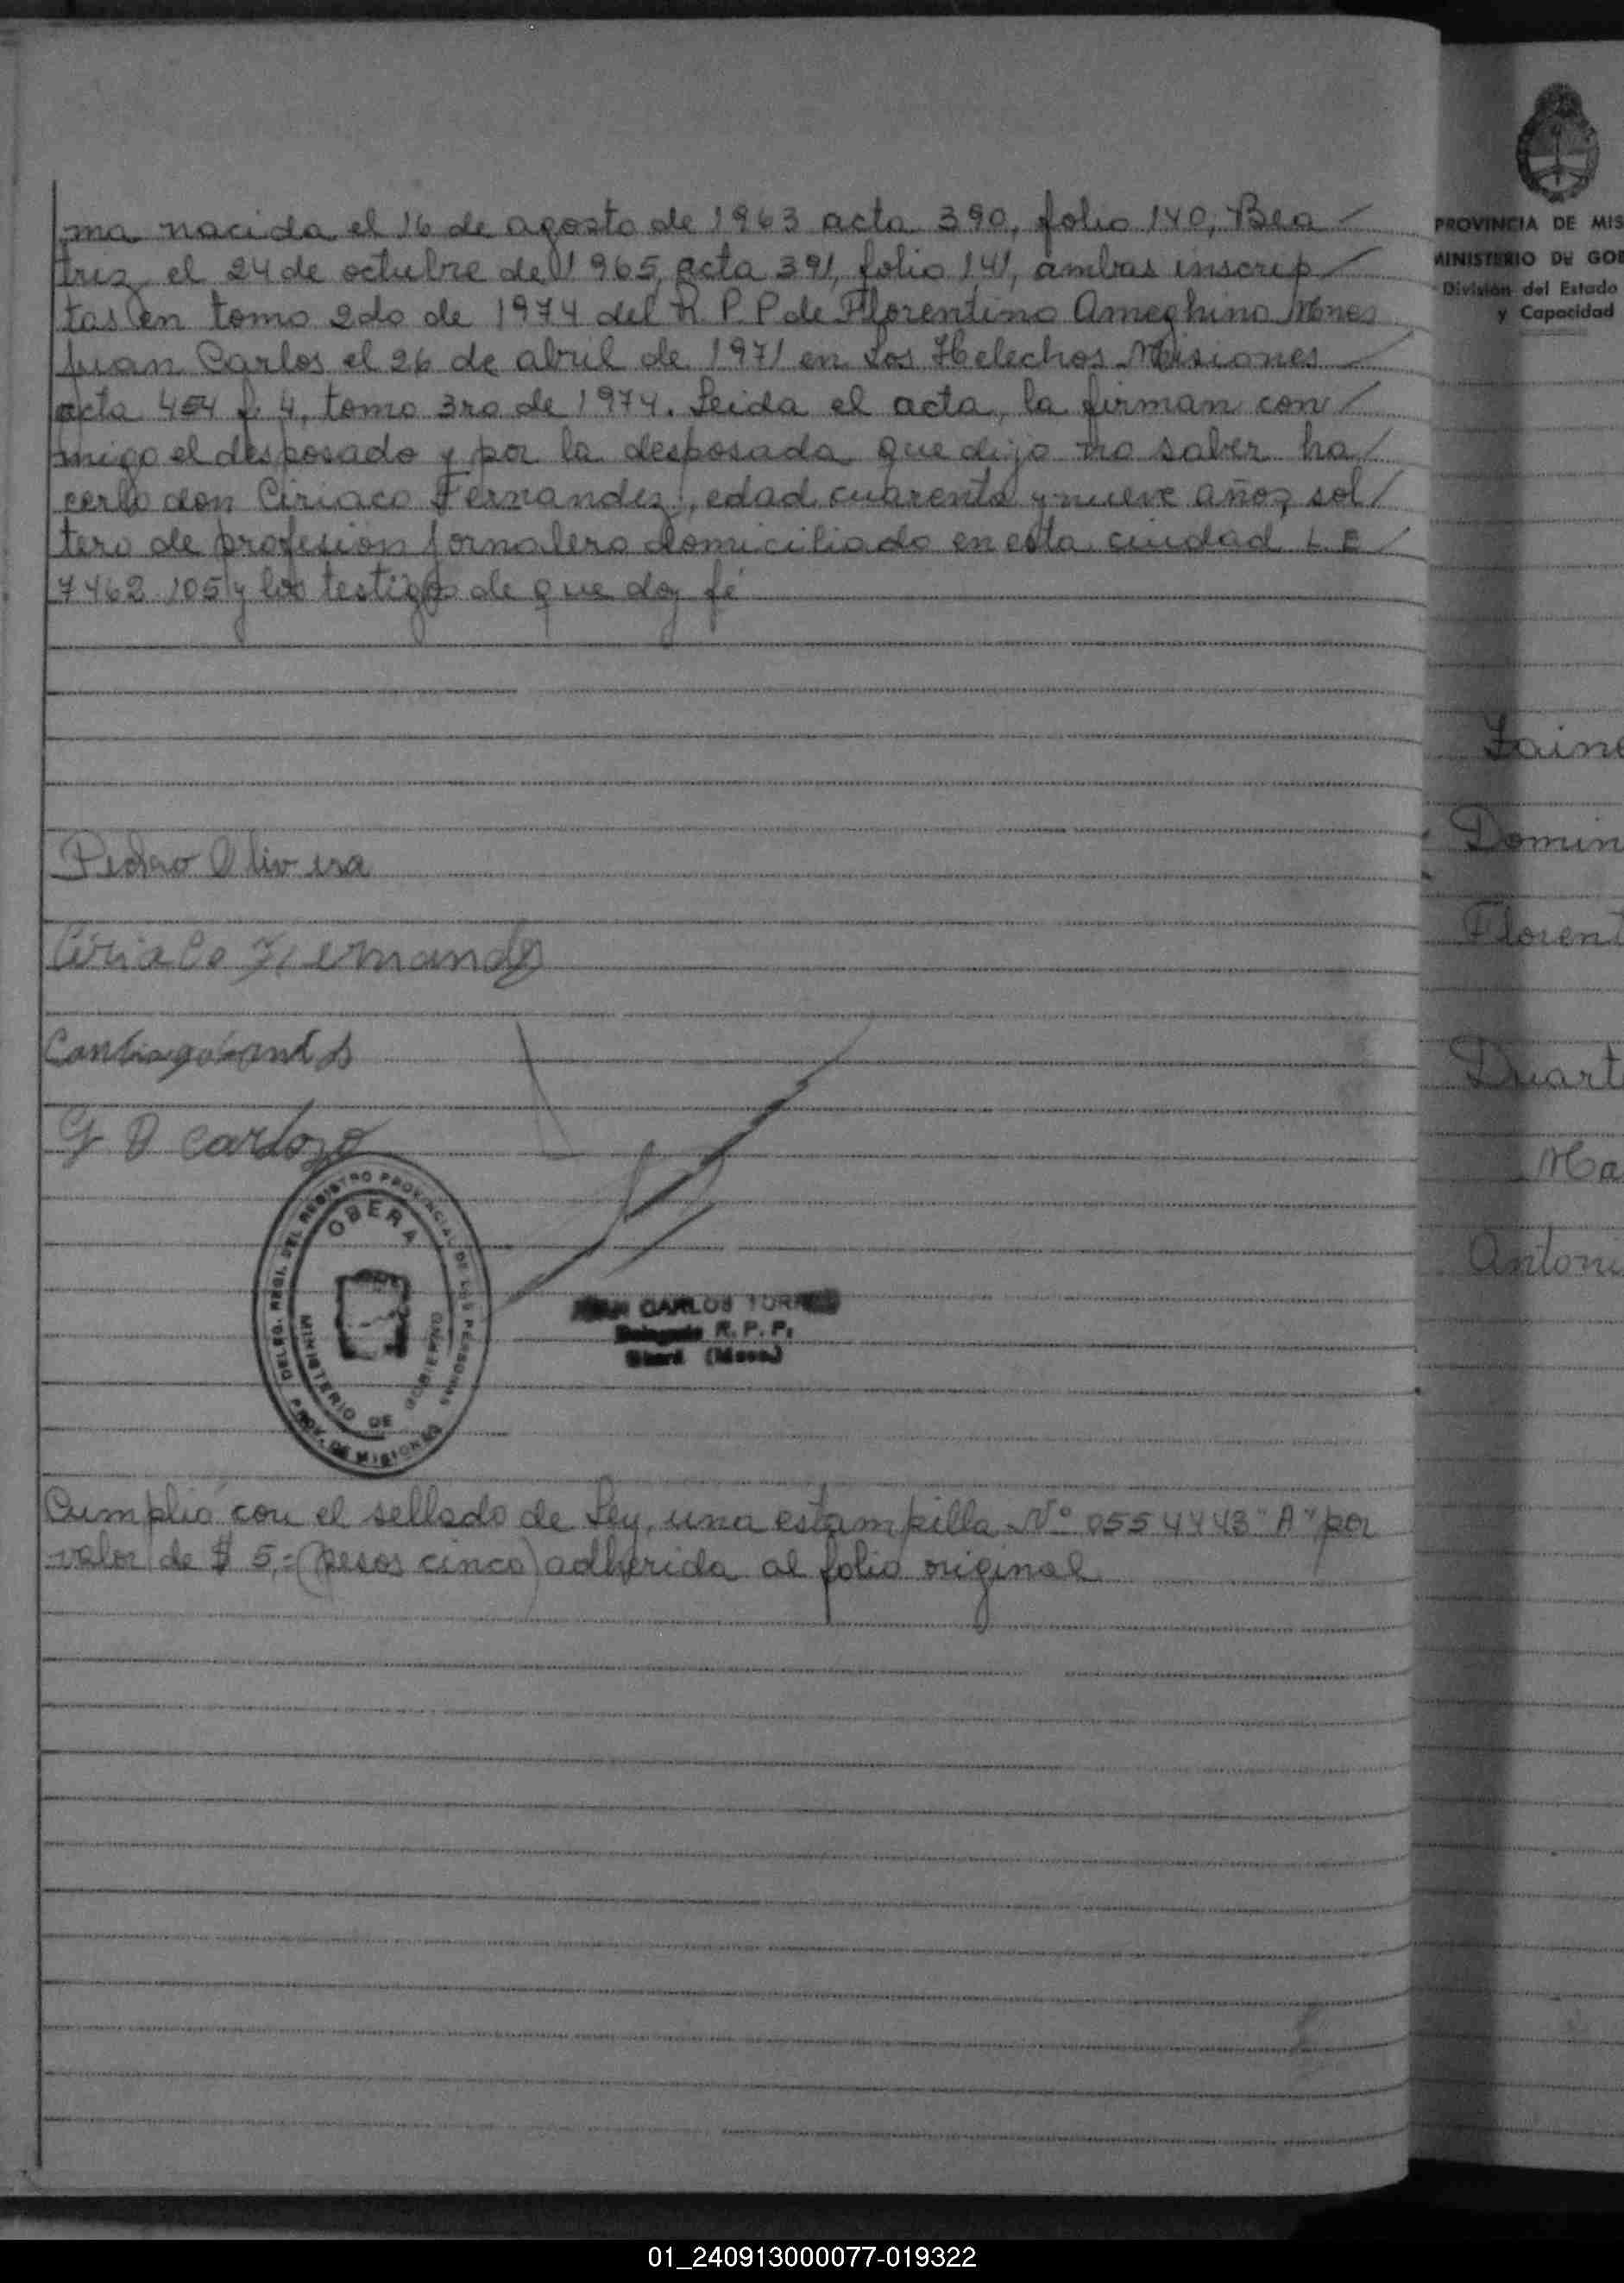 ma nacida el 16 de agosto de 1963 acta 390, folio 140, Bea /
triz el 24 de octubre de 1965, acta 391, folio 141, ambas inscrip /
tas en tomo 2do de 1974 del R. P. P de Florentino Ameghino Mnes
Juan Carlos el 26 de abril de 1971 en Los Helechos Misiones /
acta 454 f. 4, tomo 3ro de 1974. Leida el acta, la firman con /
migo el desposado y por la desposada que dijo no saber ha /
cerlo don Ciriaco Fernandez, edad cuarenta y nueve años, sol /
tero de profesion jornalero domiciliado en esta ciudad L E /
7462105 y los testigos de que doy fé
Pedro Olivera
Ciriaco Fernandez
G D Cardozo
DELEG. REGI. DEL REGISTRO PROVINCIAL DE LAS PERSONAS
OBERA
MINISTERIO DE GOBIERNO
PROV. DE MISIONES
JUAN CARLOS TORRES
Delegado R. P. P.
Oberá (Mnes.)
Cumplió con el sellado de Ley, una estampilla Nº 0554443 "A" por
valor de $ 5,= (pesos cinco) adherida al folio original
PROVINCIA DE MIS
MINISTERIO DE GOB
División del Estado
y Capacidad
Zaine
Domin
Florent
Duart
Ma
Antoni
01_240913000077-019322